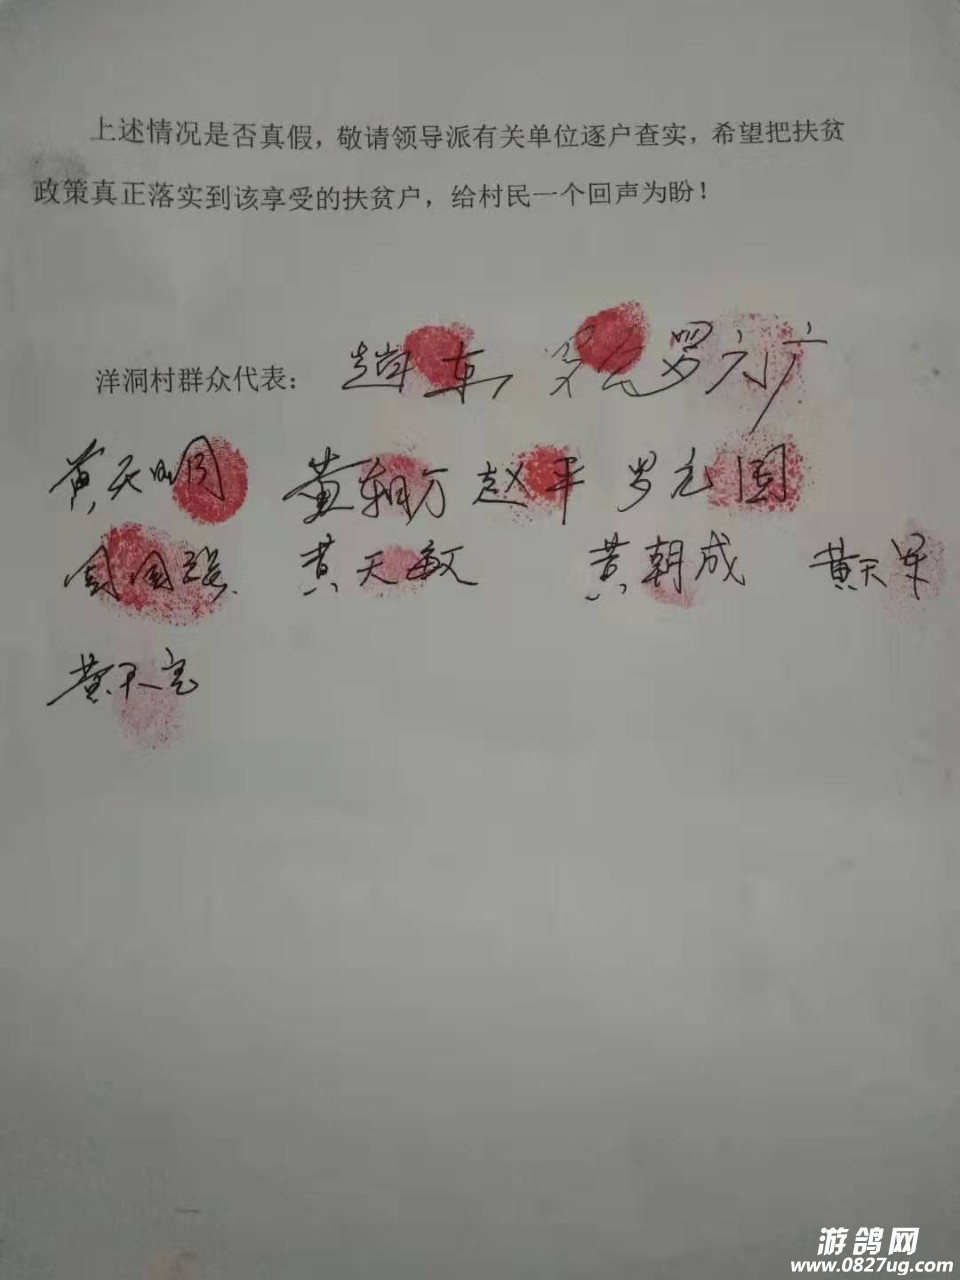 上述情况是否真假，敬请领导派有关单位逐户查实，希望把扶贫
政策真正落实到该享受的扶贫户，给村民一个回声为盼！
洋洞村群众代表：
黄天明 赵平 罗元国
黄天敏 黄朝成 黄天军
黄天亮
游鸽网
www.0827ug.com